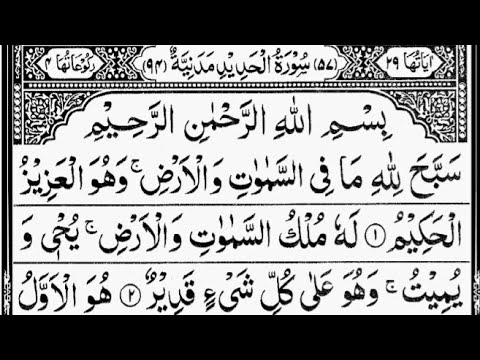 اٰيَاتُهَا ٢٩ (٥٧) سُوْرَةُ الْحَدِيْدِ مَدَنِيَّةٌ (٩٤) رُكُوْعَاتُهَا ٤
بِسْمِ اللهِ الرَّحْمٰنِ الرَّحِيْمِ
سَبَّحَ لِلّٰهِ مَا فِي السَّمٰوٰتِ وَالْاَرْضِ ۚ وَهُوَ الْعَزِيْزُ
الْحَكِيْمُ ① لَهٗ مُلْكُ السَّمٰوٰتِ وَالْاَرْضِ ۚ يُحْيٖ وَ
يُمِيْتُ ۚ وَهُوَ عَلٰى كُلِّ شَيْءٍ قَدِيْرٌ ② هُوَ الْاَوَّلُ